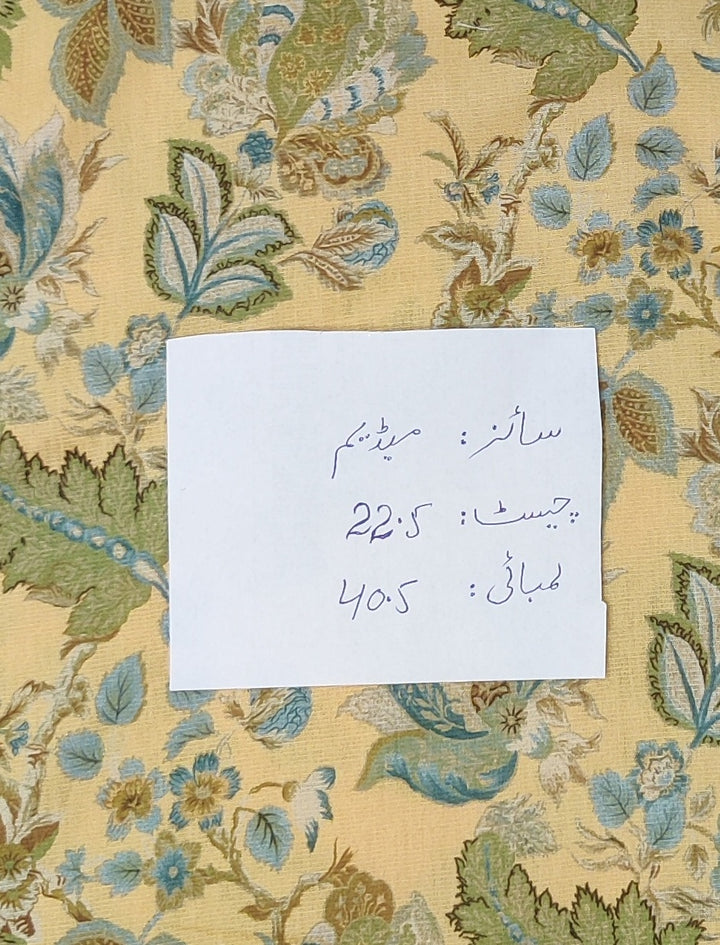 سائز: میڈیم
چیسٹ: 22.5
لمبائی: 40.5